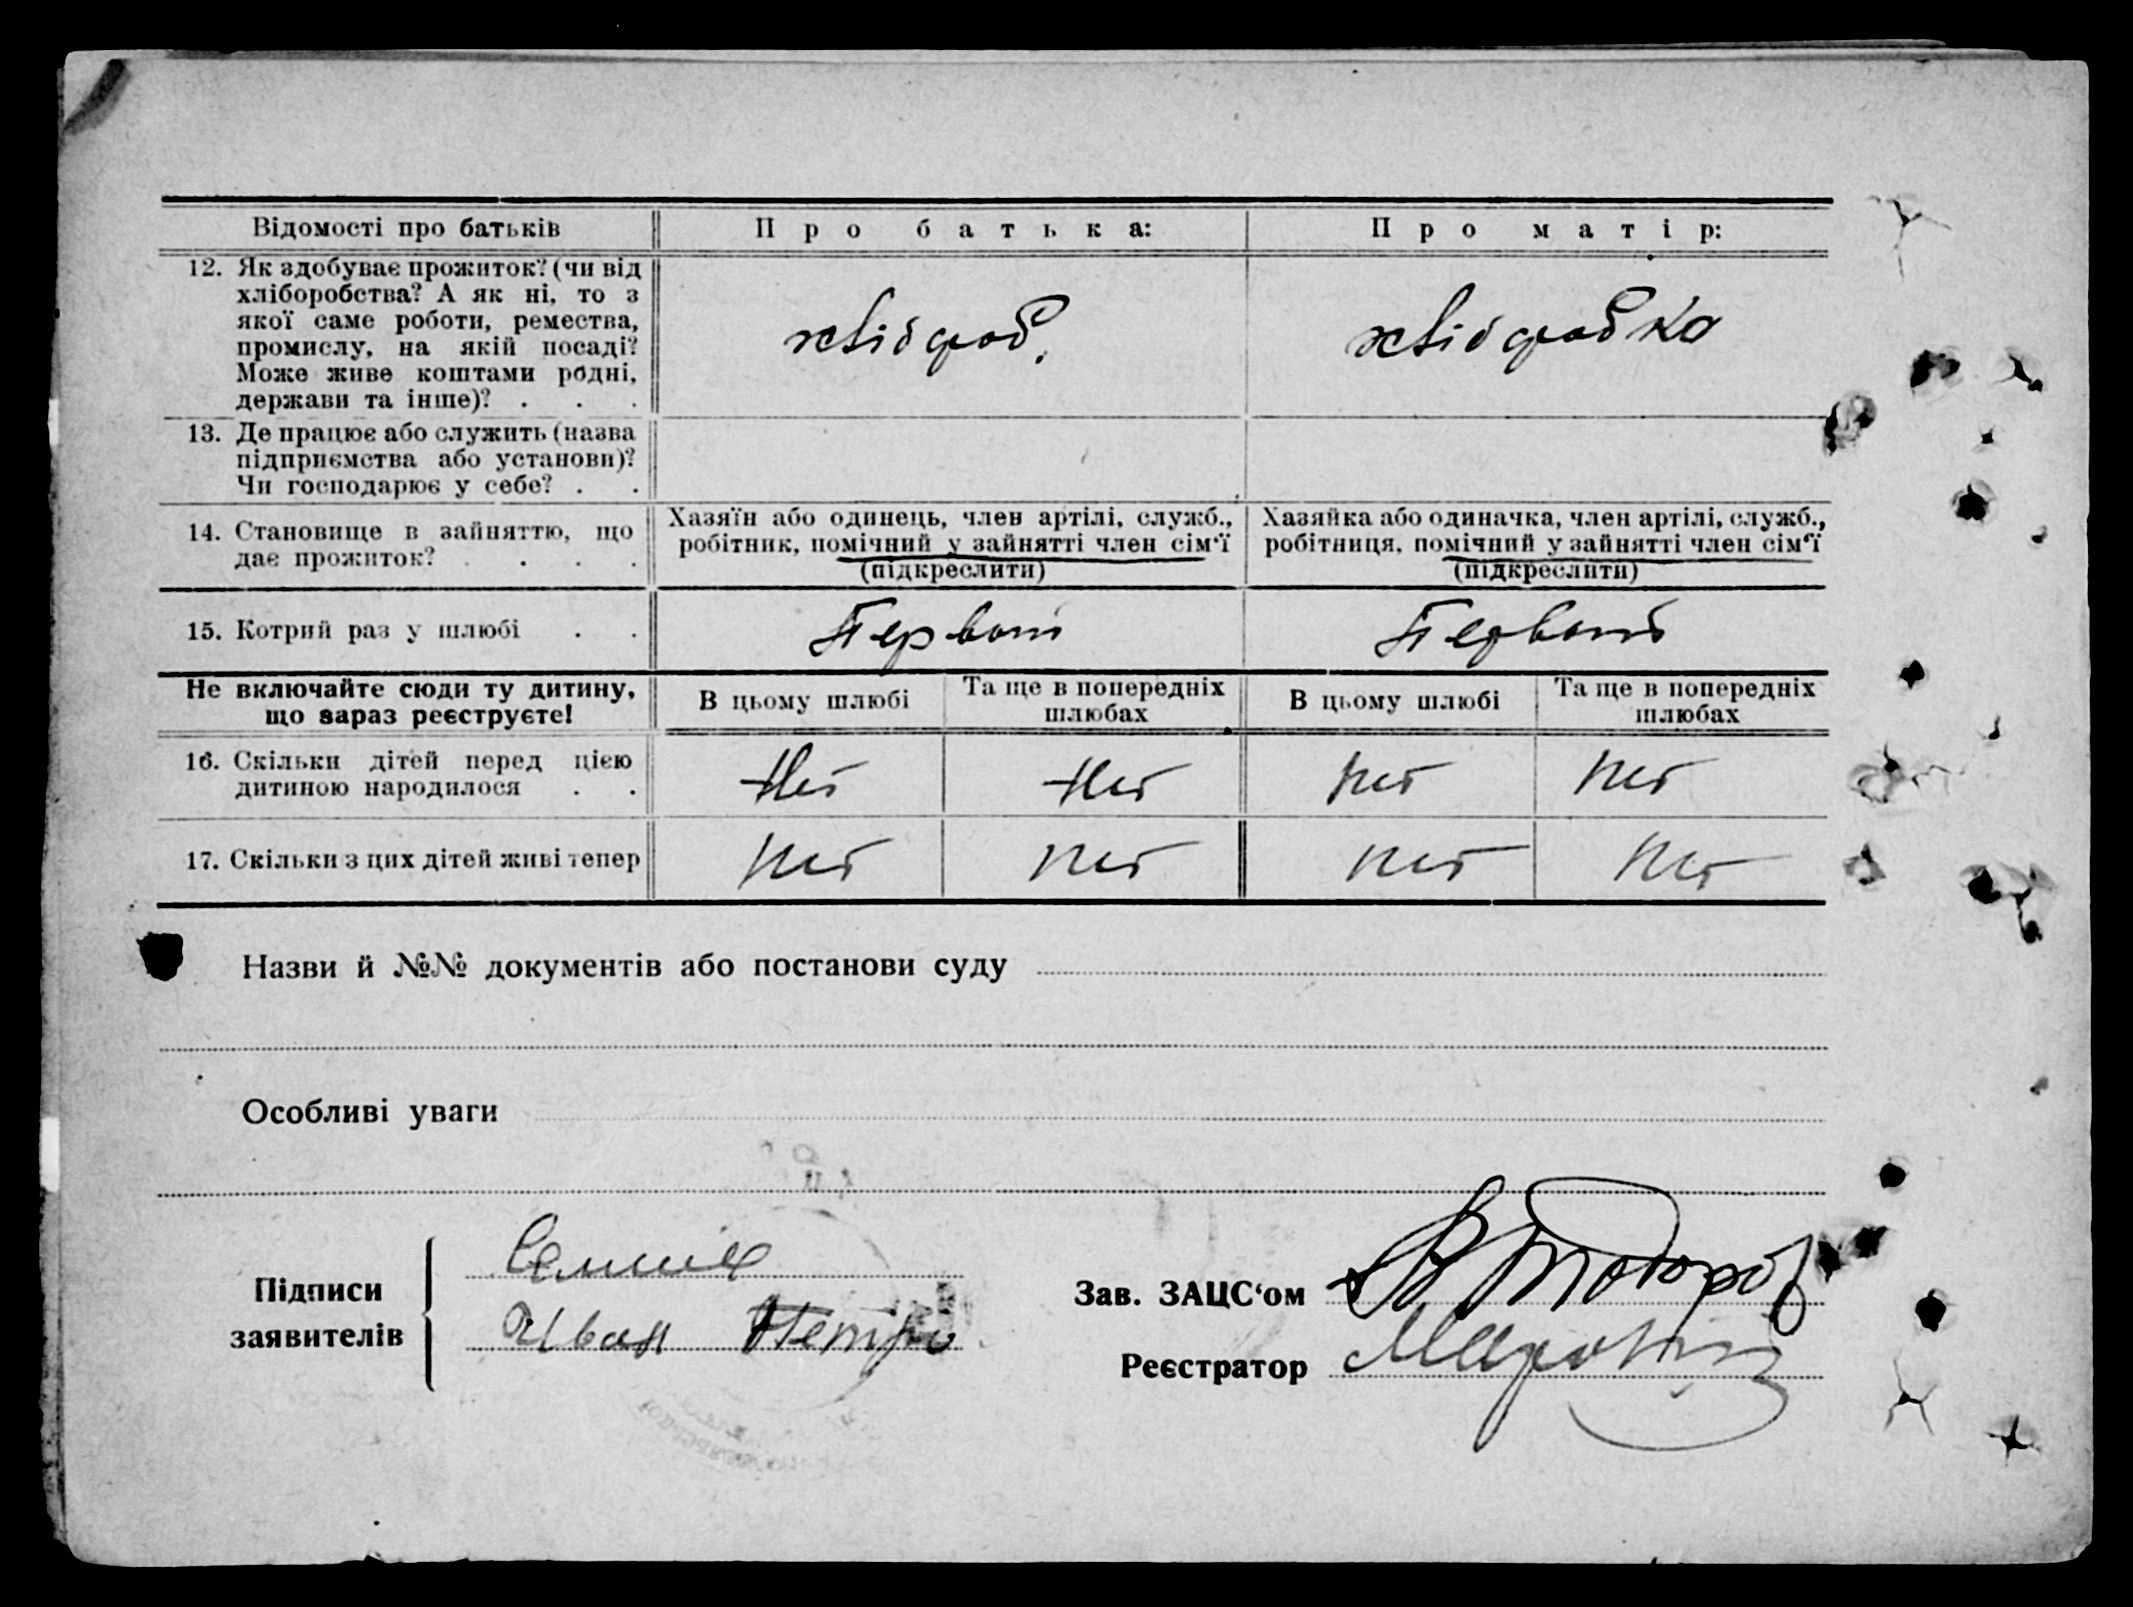 Відомості про батьків
Про батька:
Про матір:
12. Як здобуває прожиток? (чи від
хліборобства? А як ні, то з
якої саме роботи, ремества,
промислу, на якій посаді?
Може живе коштами рідні,
держави та інше)? . . .
хлібороб.
хліборобка
13. Де працює або служить (назва
підприємства або установи)?
Чи господарює у себе? . .
14. Становище в зайняттю, що
дає прожиток? . . . .
Хазяїн або одинець, член артілі, служб.,
робітник, помічний у зайнятті член сім'ї
(підкреслити)
Хазяйка або одиначка, член артілі, служб.,
робітниця, помічний у зайнятті член сім'ї
(підкреслити)
15. Котрий раз у шлюбі . .
Первий
Первий
Не включайте сюди ту дитину,
що зараз реєструєте!
В цьому шлюбі
Та ще в попередніх
шлюбах
В цьому шлюбі
Та ще в попередніх
шлюбах
16. Скільки дітей перед цією
дитиною народилося . .
Нет
Нет
Нет
Нет
17. Скільки з цих дітей живі тепер
Нет
Нет
Нет
Нет
Назви й №№ документів або постанови суду
Особливі уваги
Підписи
заявителів
Иван
Зав. ЗАЦС'ом
Реєстратор